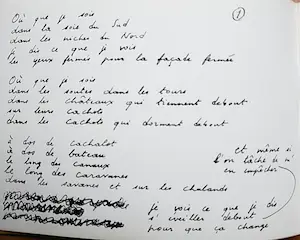 ①
Où que je sois
dans la soie du Sud
dans les niches du Nord
je dis ce que je vois
les yeux fermés pour la façade fermée
Où que je sois
dans les soutes dans les tours
dans les châteaux qui tiennent debout
sur leurs cachots
dans les cachots qui dorment debout
à dos de cachalot
à dos de bateau
le long des canaux
le long des caravanes
dans les savanes et sur les chalands
et même si
l'on tâche de m'
en empêcher
je vois ce que je dis
s'éveiller debout
pour que ça change